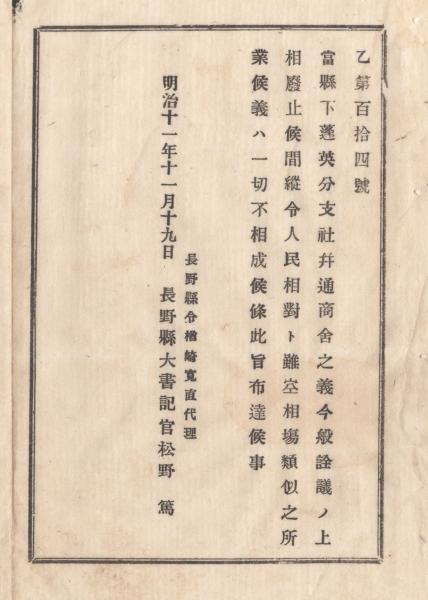 乙第百拾四號
當縣下蓬英分支社幷通商舍之義今般詮議ノ上
相廢止候間縱令人民相對ト雖空相塲類似之所
業候義ハ一切不相成候條此旨布達候事
長野縣令楢崎寬直代理
明治十一年十一月十九日　長野縣大書記官松野　篤